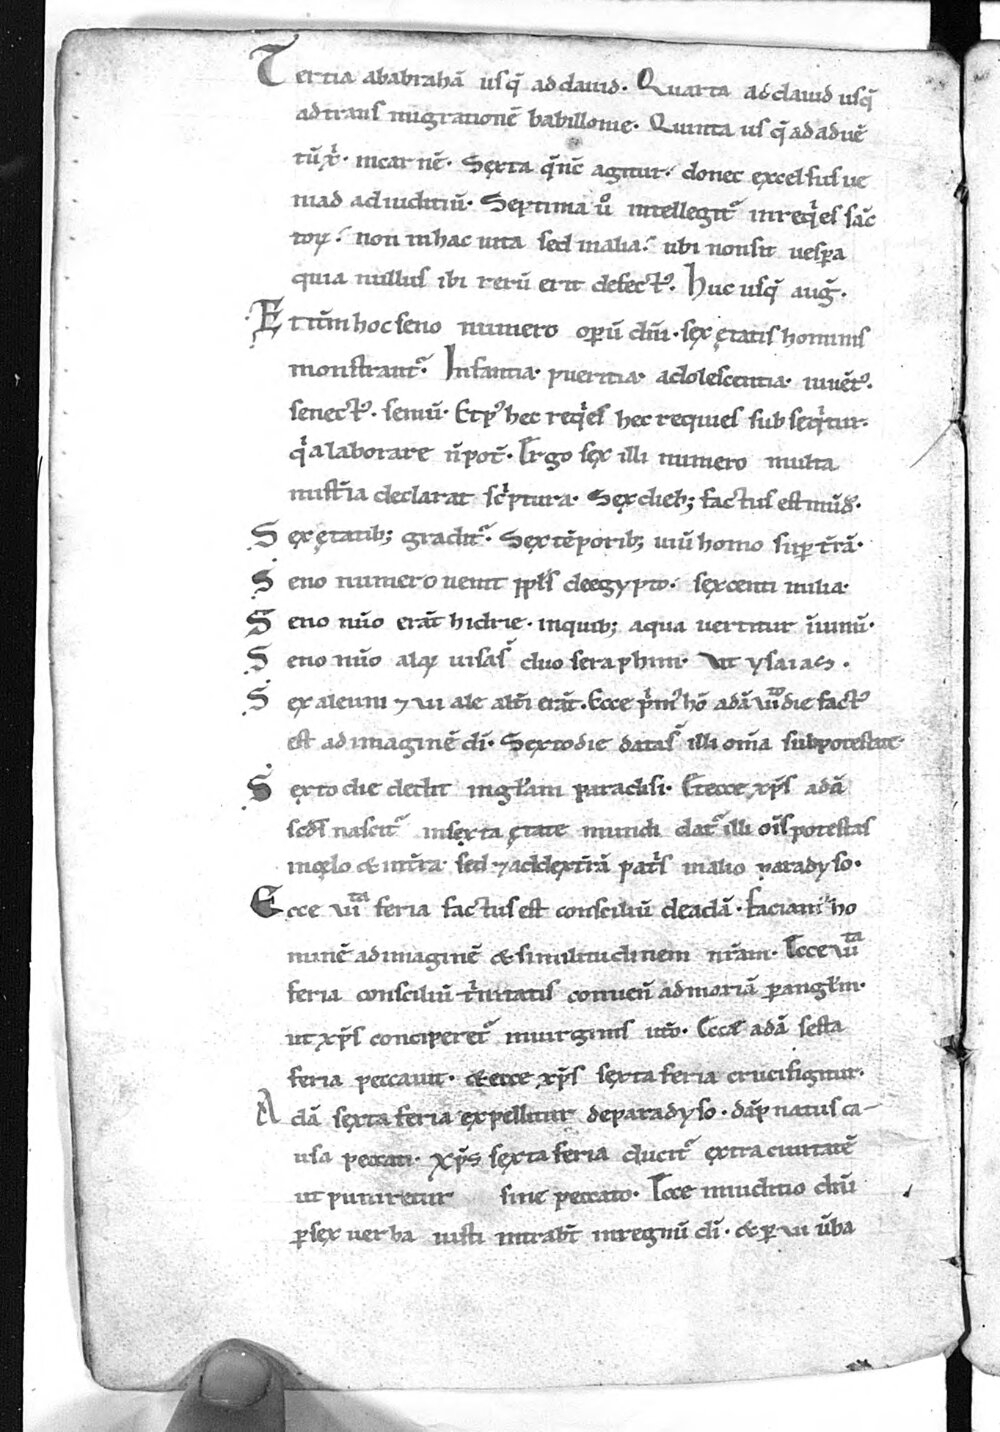 Tertia ababrahā usq̄ addauid. Quarta addauid usq̄
adtrans migrationē babillonie. Quinta usq̄ adaduē
tū xp̄i. incarnē. Sexta q̄ nc̄ agitur. donec excelsus ue
niad adiuditiū. Septima ů intellegit᷑ inreq̇es sāc
toꝝ. non inhac uita sed inalia. ubi nonsit uesꝑa
quia nullus ibi rerū erit defectꝰ. Huc usq̄ auḡ.
Et tūm hoc seno numero oꝑū dn̄i. sex ętatis hominis
monstrant᷑. Infantia. pueritia. adolescentia. iuuētꝰ.
senectꝰ. seniū. Et pꝰ hec req̇es hec requies subseq̇tur.
q̇a laborare n̄ pot̄. Ergo sex illi numero multa
mist̄ia declarat sċptura. Sex dieb; factus est mūdꝰ.
Sex ętatib; gradit᷑. Sex tēporib; uiū homo suꝑ t̄rā.
Seno numero uenit pp̄ls deegypto. sexcenti milia.
Seno nūo erāt hidrie. inquib; aqua uertitur ūinū.
Seno nūo alaꝝ uisas᷑ duo seraphim. Ut ysaias.
Sex aleuni ⁊ ui ale alt̄i erāt. Ecce ṗmꝰ hō adā uīto die factꝰ
est adimaginē dī. Sextodie datas᷑ illi om̄ia subpotestate
Sexto die dedit ingl̄iam paradisi. Et ecce xp̄s adā
scd̄s nascit᷑ insexta ętate mundi dat᷑ illi oīs potestas
incęlo & int̄ra. sed ⁊ addext̄rā pat̄s inalto paradyso.
Ecce uīta feria factus est consciliū deadā. faciamꝰ ho
minē adimaginē & similitudinem nr̄am. Ecce uīta
feria consciliū ṫnitatis conuen̄ admariā ꝑangl̄m.
ut xp̄s conciperet᷑ inuirginis ut̄o. Ecce adā sesta
feria peccauit. & ecce xp̄s sexta feria crucifigitur.
Adā sexta feria expellitur deparadyso. dāp natus ca
usa peccati. Xp̄s sexta feria ducit᷑ extra ciuitatē
ut puniretur sine peccato. Ecce iniuditio dn̄i
ꝑ sex uerba iusti intrabt̄ inregnū dī. & ꝑ ui ūba